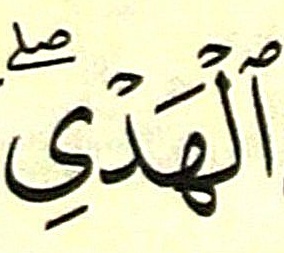 ٱلْهَدْيِ ۖ